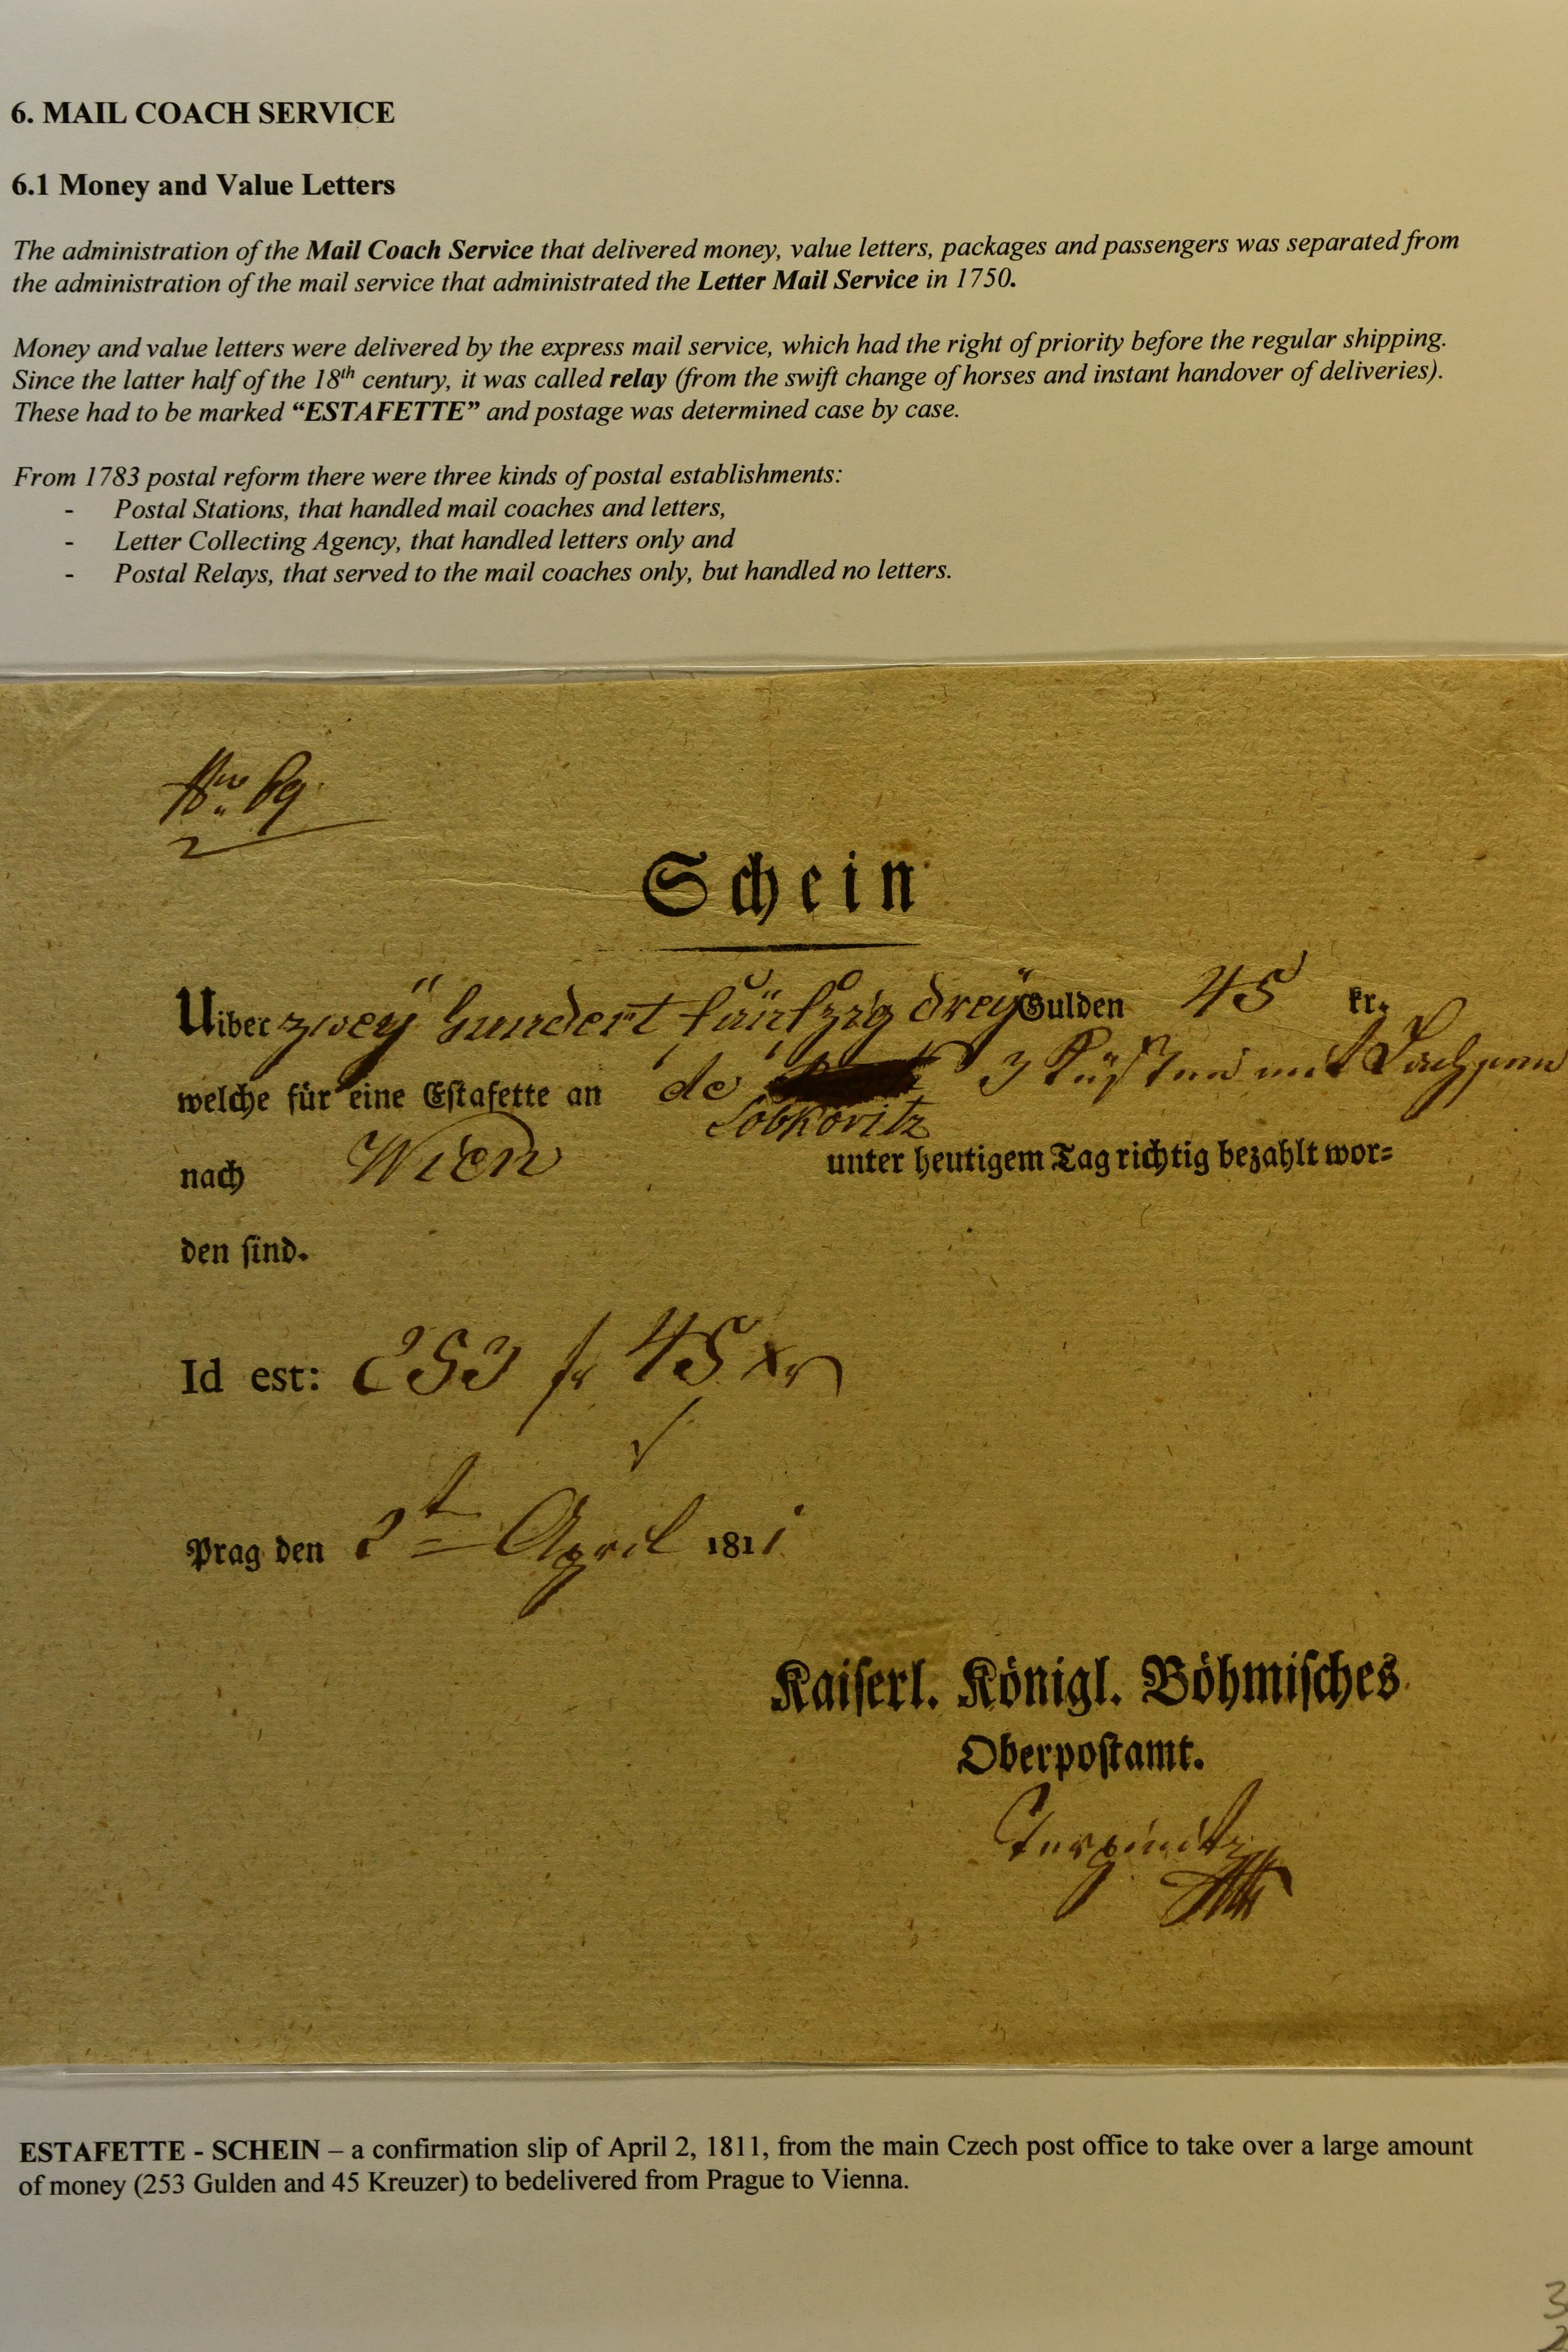 6. MAIL COACH SERVICE
6.1 Money and Value Letters
The administration of the Mail Coach Service that delivered money, value letters, packages and passengers was separated from
the administration of the mail service that administrated the Letter Mail Service in 1750.
Money and value letters were delivered by the express mail service, which had the right of priority before the regular shipping.
Since the latter half of the 18th century, it was called relay (from the swift change of horses and instant handover of deliveries).
These had to be marked “ESTAFETTE” and postage was determined case by case.
From 1783 postal reform there were three kinds of postal establishments:
- Postal Stations, that handled mail coaches and letters,
- Letter Collecting Agency, that handled letters only and
- Postal Relays, that served to the mail coaches only, but handled no letters.
Nro. 69
Schein
Uiber zwey hundert fünfzig drey Gulden 45 kr.
welche für eine Estafette an de 3 mit
Lobkovitz
nach Wien unter heutigem Tag richtig bezahlt wor=
den sind.
Id est: 253 fr 45 xr
Prag den 2t April 1811
Kaiserl. Königl. Böhmisches
Oberpostamt.
ESTAFETTE - SCHEIN – a confirmation slip of April 2, 1811, from the main Czech post office to take over a large amount
of money (253 Gulden and 45 Kreuzer) to bedelivered from Prague to Vienna.